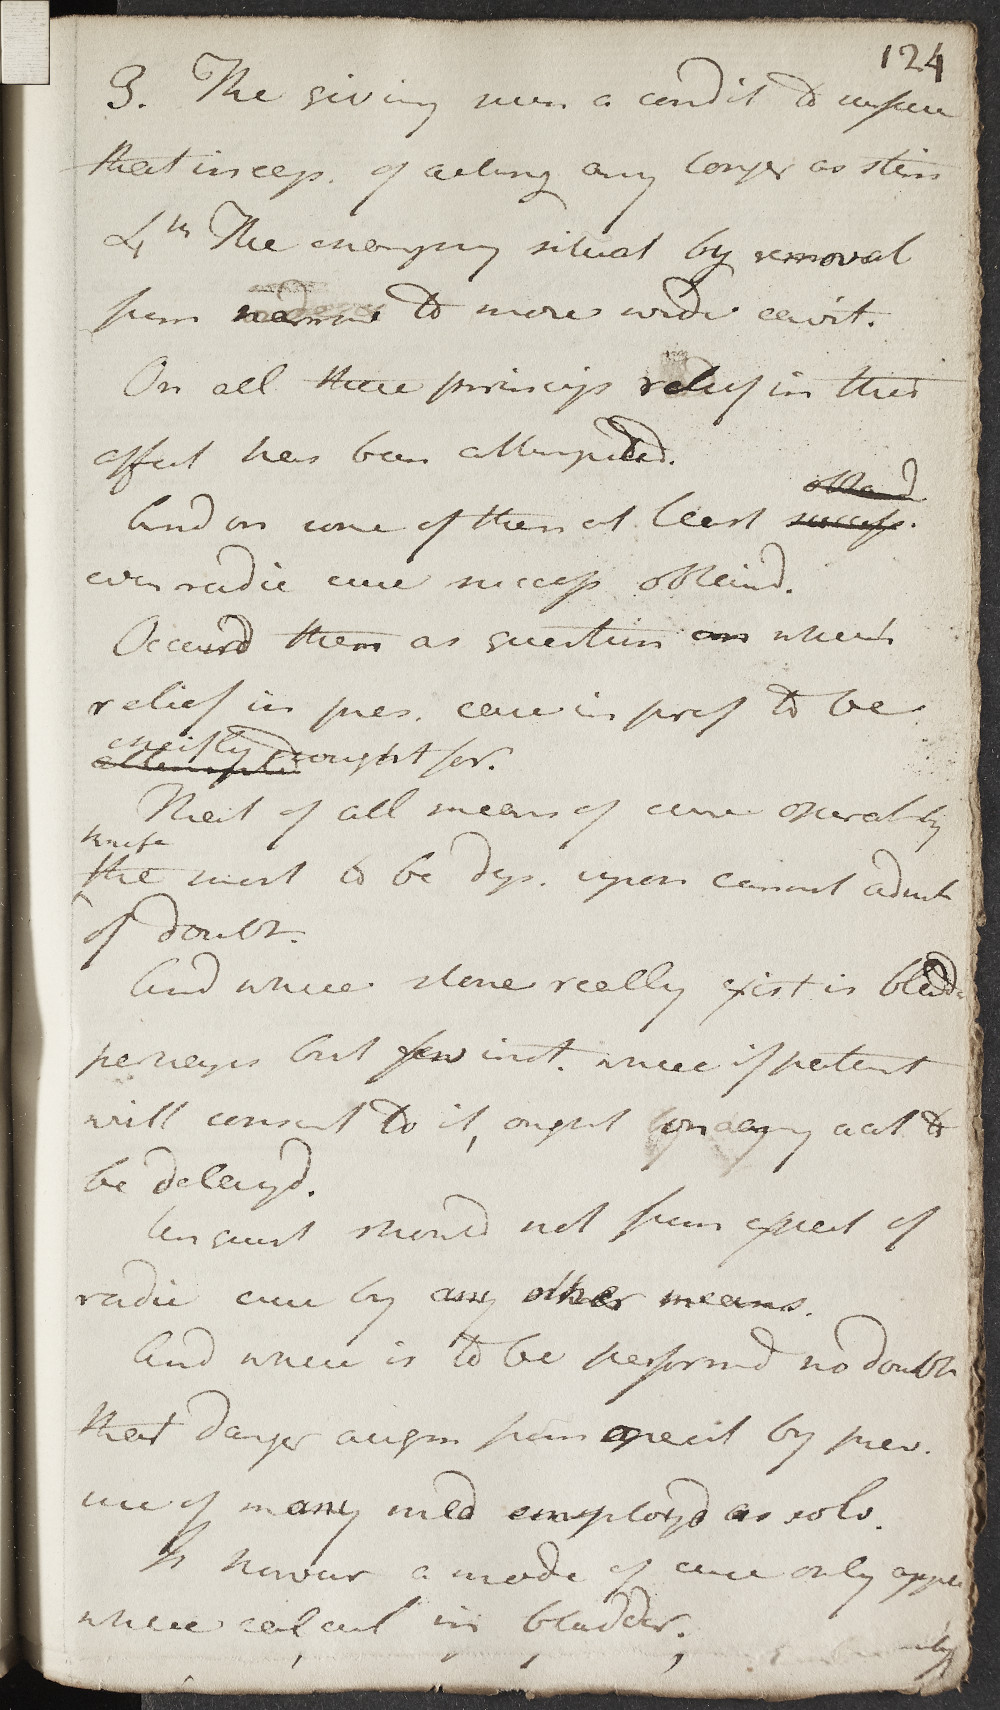 124
3. The giving such a condit to uneasi
that incap. of acting any longer as stim
4th The changing situat by removal
from narrow to more wide cavit.
On all these princips relief in this
affect has been attempted.
And on some of them at least success.
obtaind
even radic cure success obtaind.
Occurd then as question on which
relief in pres. case is pref to be
chiefly attempted sought for.
That of all means of cure operat by
knife
the most to be dep. upon cannot admit
of doubt.
And where stone really exist in bladd
perhaps but few inst. where if patient
will consent to it, ought to
be delayd.
August should not from expect of
radic cure by any other means.
And where is to be performd no doubt
that danger augm from operat by prev.
use of many med employd as solv.
Is howevr a mode of cure only appli
where calcul in bladder.